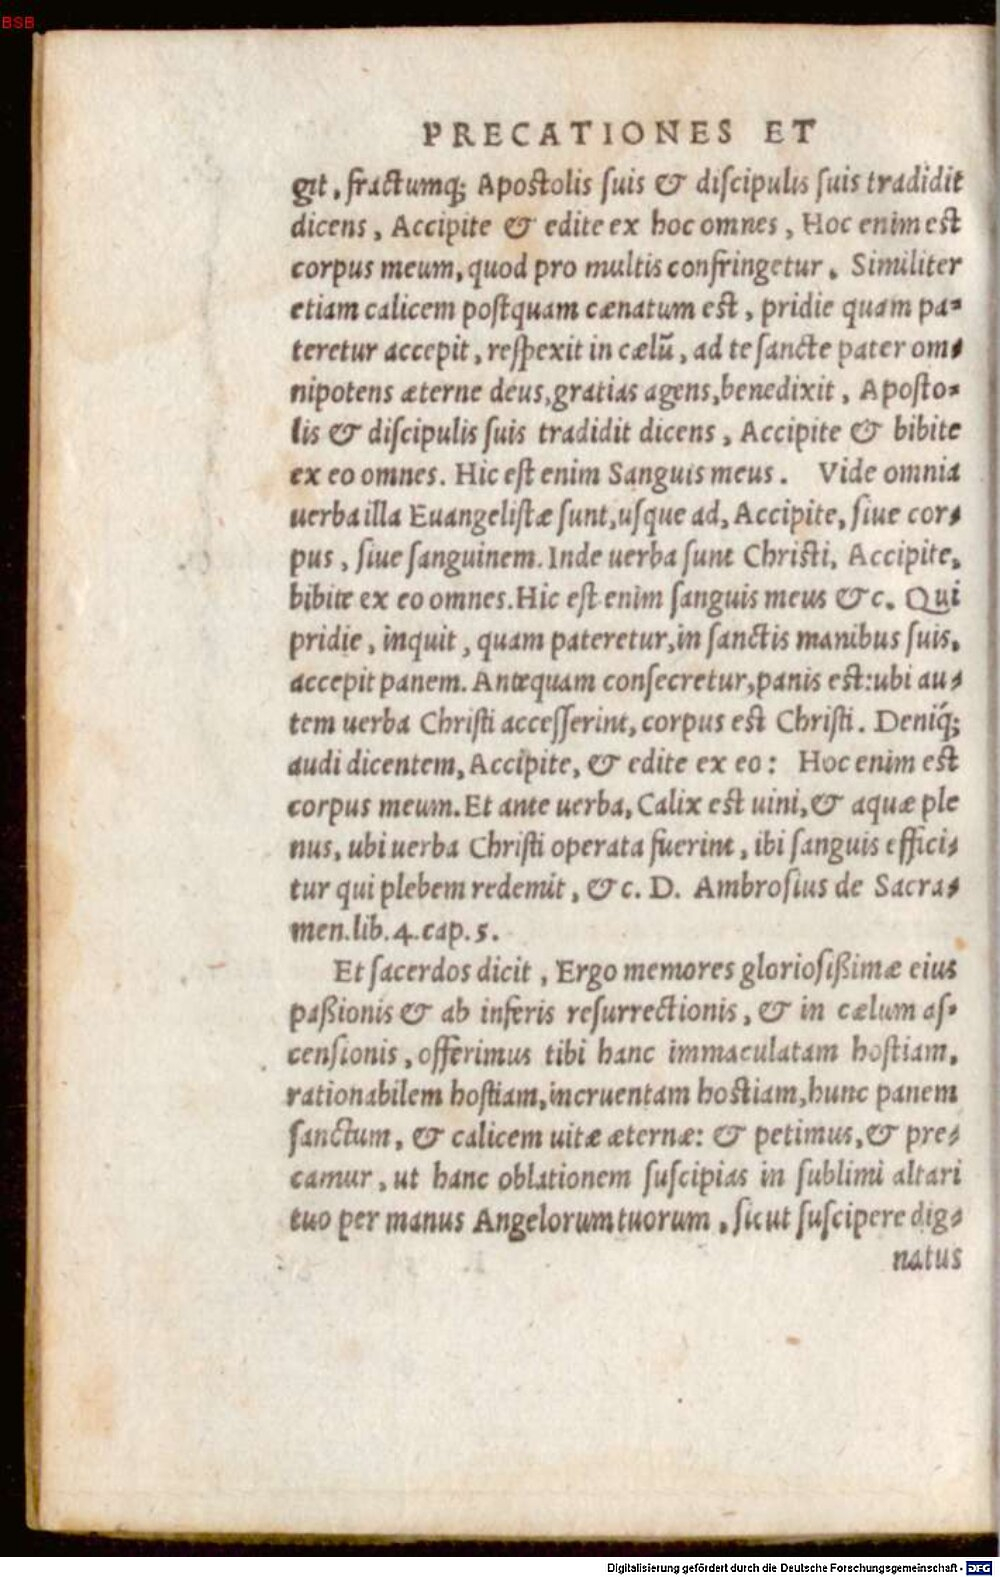 BSB
PRECATIONES ET
git, fractumq; Apostolis suis & discipulis suis tradidit
dicens, Accipite & edite ex hoc omnes, Hoc enim est
corpus meum, quod pro multis confringetur. Similiter
etiam calicem postquam cænatum est, pridie quam pa-
teretur accepit, respexit in cælū, ad te sancte pater om-
nipotens æterne deus, gratias agens, benedixit, Aposto-
lis & discipulis suis tradidit dicens, Accipite & bibite
ex eo omnes. Hic est enim Sanguis meus. Vide omnia
uerba illa Euangelistæ sunt, usque ad, Accipite, siue cor-
pus, siue sanguinem. Inde uerba sunt Christi, Accipite,
bibite ex eo omnes. Hic est enim sanguis meus &c. Qui
pridie, inquit, quam pateretur, in sanctis manibus suis,
accepit panem. Antequam consecretur, panis est: ubi au-
tem uerba Christi accesserint, corpus est Christi. Deniq́;
audi dicentem, Accipite, & edite ex eo: Hoc enim est
corpus meum. Et ante uerba, Calix est uini, & aquæ ple
nus, ubi uerba Christi operata fuerint, ibi sanguis effici-
tur qui plebem redemit, &c. D. Ambrosius de Sacra-
men. lib. 4. cap. 5.
Et sacerdos dicit, Ergo memores gloriosißimæ eius
paßionis & ab inferis resurrectionis, & in cælum as-
censionis, offerimus tibi hanc immaculatam hostiam,
rationabilem hostiam, incruentam hostiam, hunc panem
sanctum, & calicem uitæ æternæ: & petimus, & pre-
camur, ut hanc oblationem suscipias in sublimi altari
tuo per manus Angelorum tuorum, sicut suscipere dig-
natus
Digitalisierung gefördert durch die Deutsche Forschungsgemeinschaft - DFG